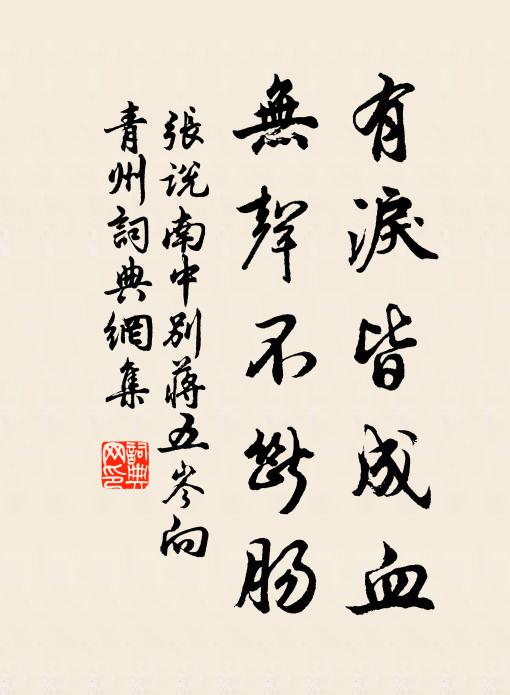 有淚皆成血
無聲不斷腸
張說南中別蔣五岑向
青州詞典網集
詞典
網印